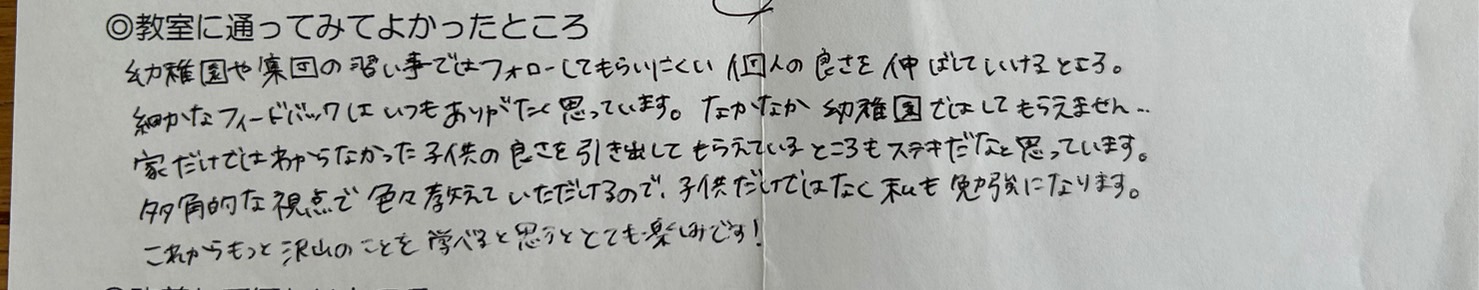 ◎教室に通ってみてよかったところ
幼稚園や集団の習い事ではフォローしてもらいにくい個人の良さを伸ばしていけるところ。
細かなフィードバックはいつもありがたく思っています。なかなか幼稚園ではしてもらえません…
家だけではわからなかった子供の良さを引き出してもらえているところもステキだなと思っています。
多角的な視点で色々教えていただけるので、子供だけではなく私も勉強になります。
これからもっと沢山のことを学べると思うととても楽しみです！